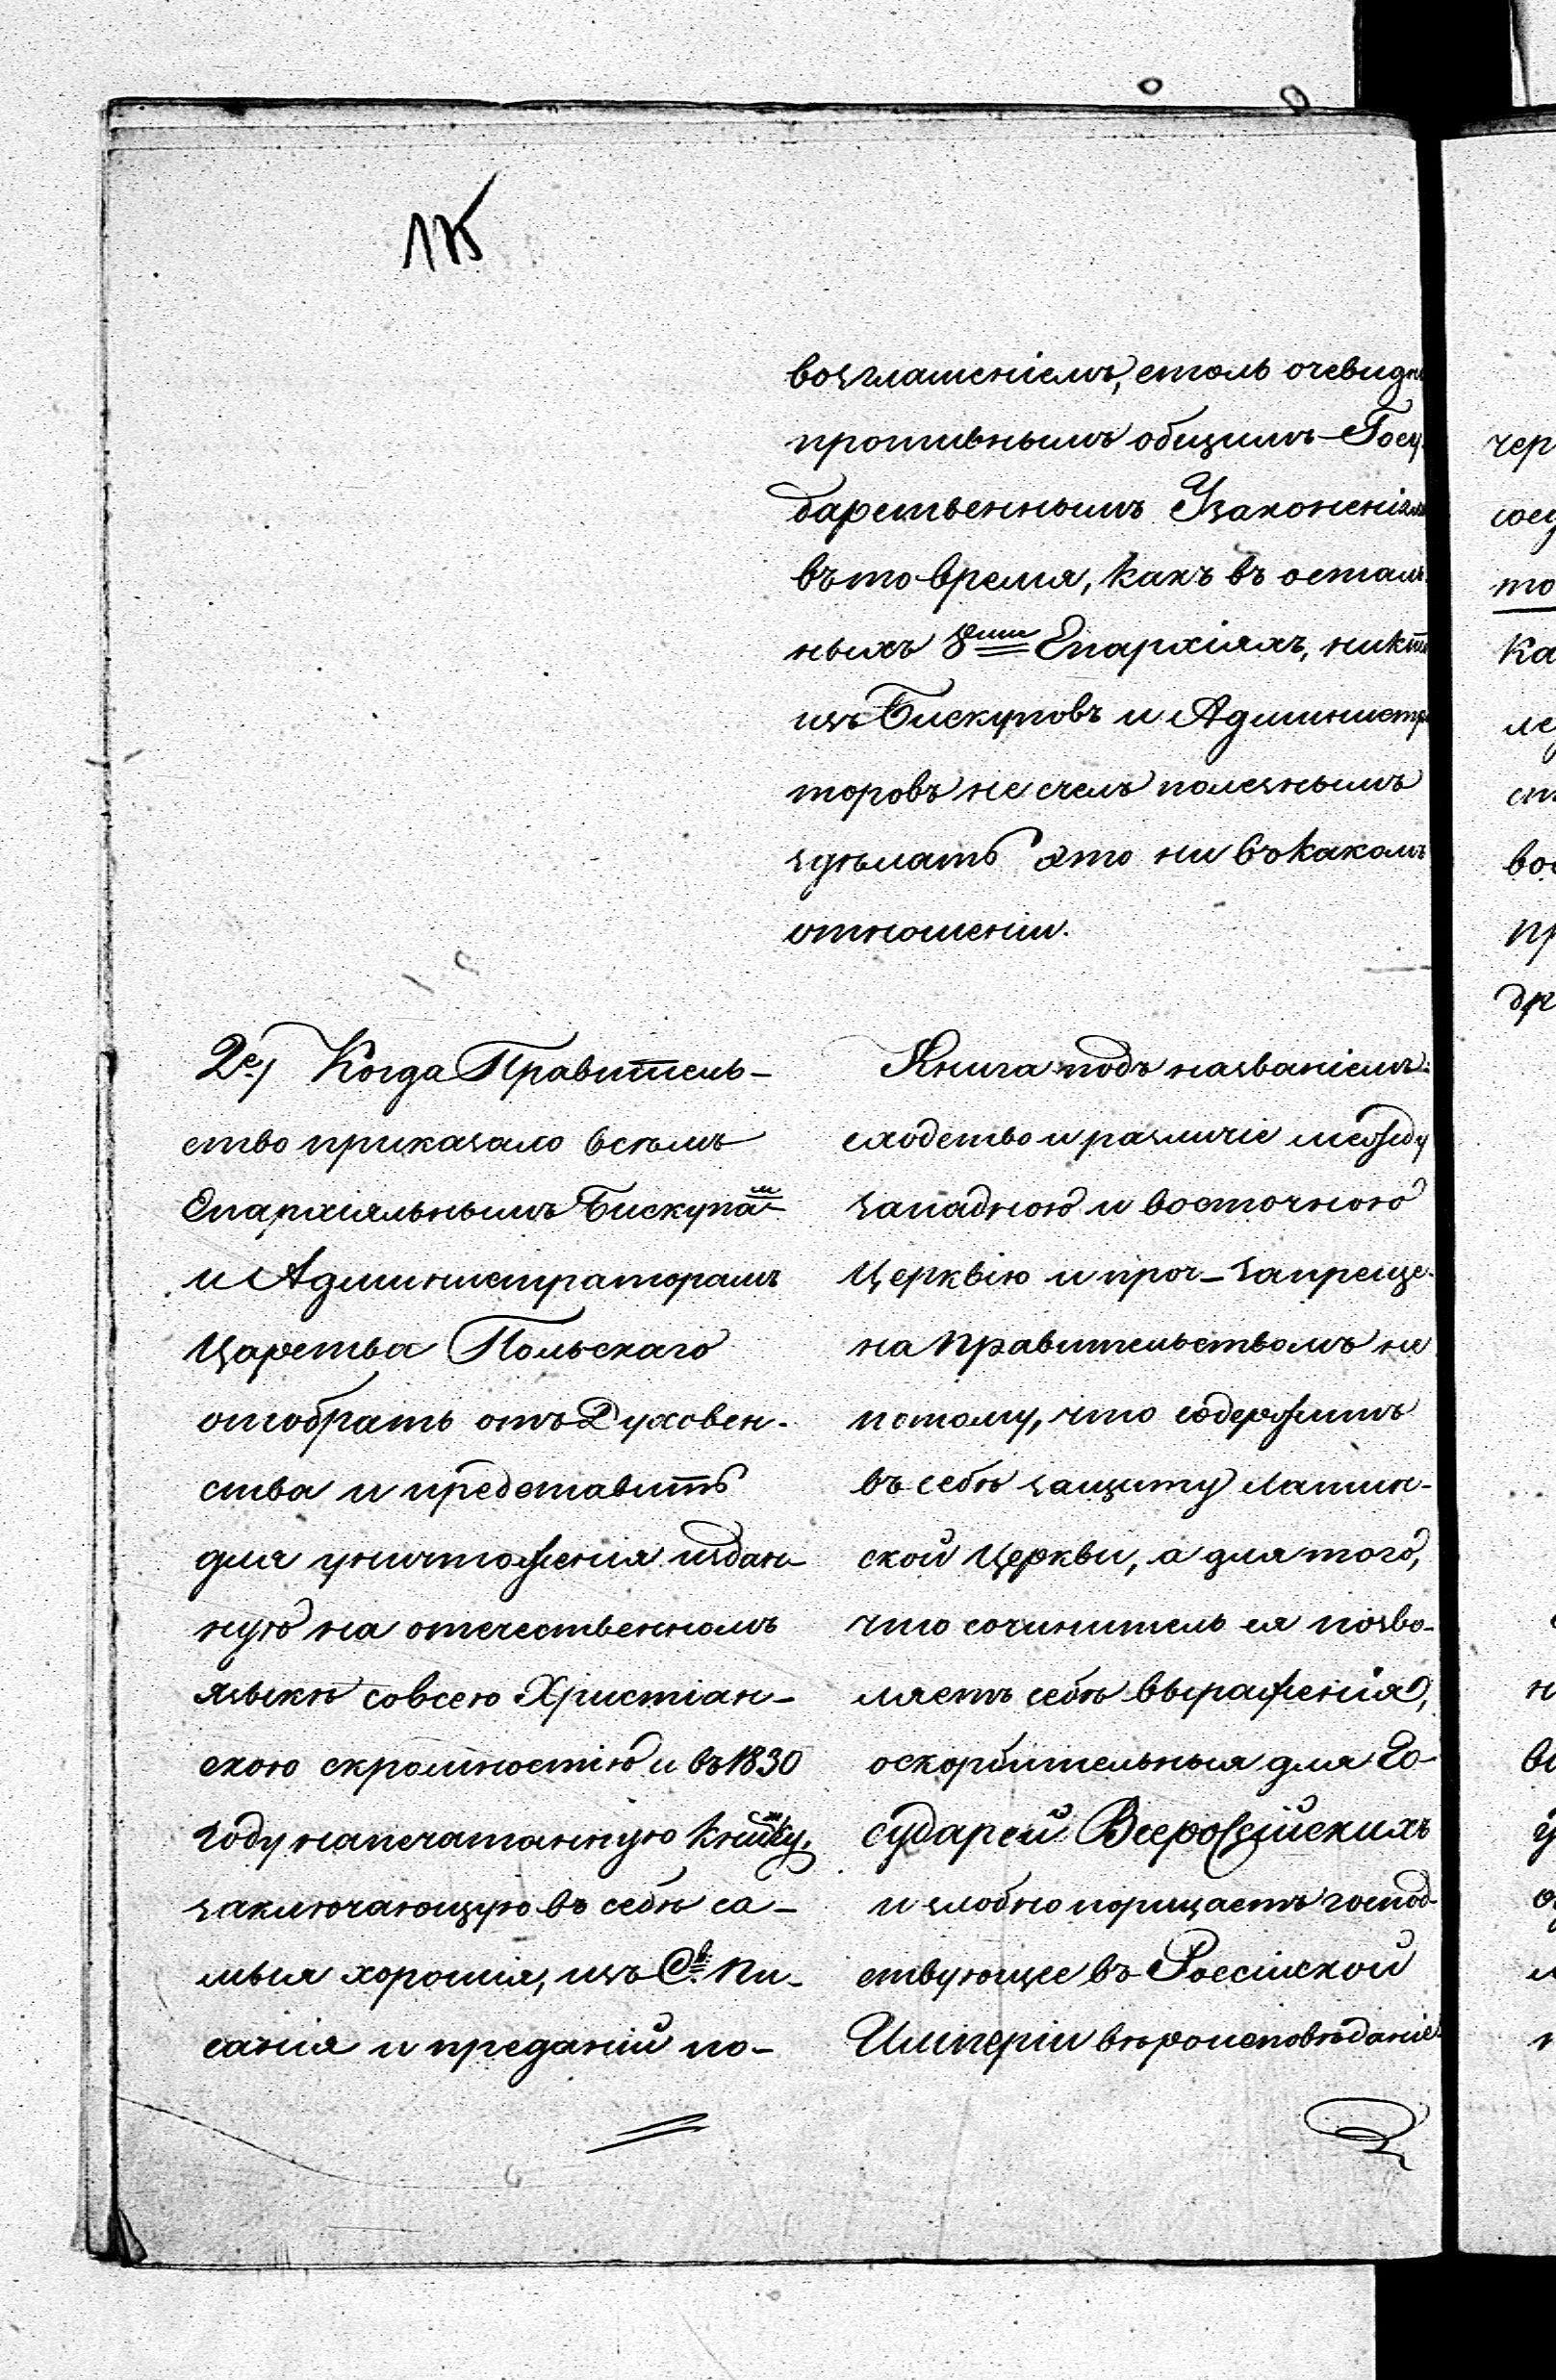 возглашеніемъ, столь очевидно
противнымъ общимъ Госу-
дарственнымъ Узаконеніямъ
въ то время, какъ въ осталь-
ныхъ 8ми Епархіяхъ, никто
изъ Бискуповъ и Администра
торовъ не счелъ полезнымъ
здѣлать это ни въ какомъ
отношеніи.
2е) Когда Правитель-
ство приказало всѣмъ
Епархіяльнымъ Бискупамъ
и Администраторамъ
Царства Польскаго
отобрать отъ Духовен-
ства и представить
для уничтоженія издан-
ную на отечественномъ
языкѣ со всею Христіан-
скою скромностію и въ 1830
году напечатанную книжку,
заключающую въ себѣ са-
мыя хорошія, изъ Св: Пи-
санія и преданій по-
Книга подъ названіемъ:
сходство и различіе между
западною и восточною
Церквію и проч_ запреще-
на Правительствомъ не
потому, что содержитъ
въ себѣ защиту Латин-
ской Церкви, а для того,
что сочинитель ея позво-
ляетъ себѣ выраженія,
оскорбительныя для Го-
сударей Всероссійскихъ
и злобно порицаетъ господ-
ствующее въ Россійской
Имперіи вѣроисповѣданіе
чер
соеу
то
ка
ле
ст
вос
пр